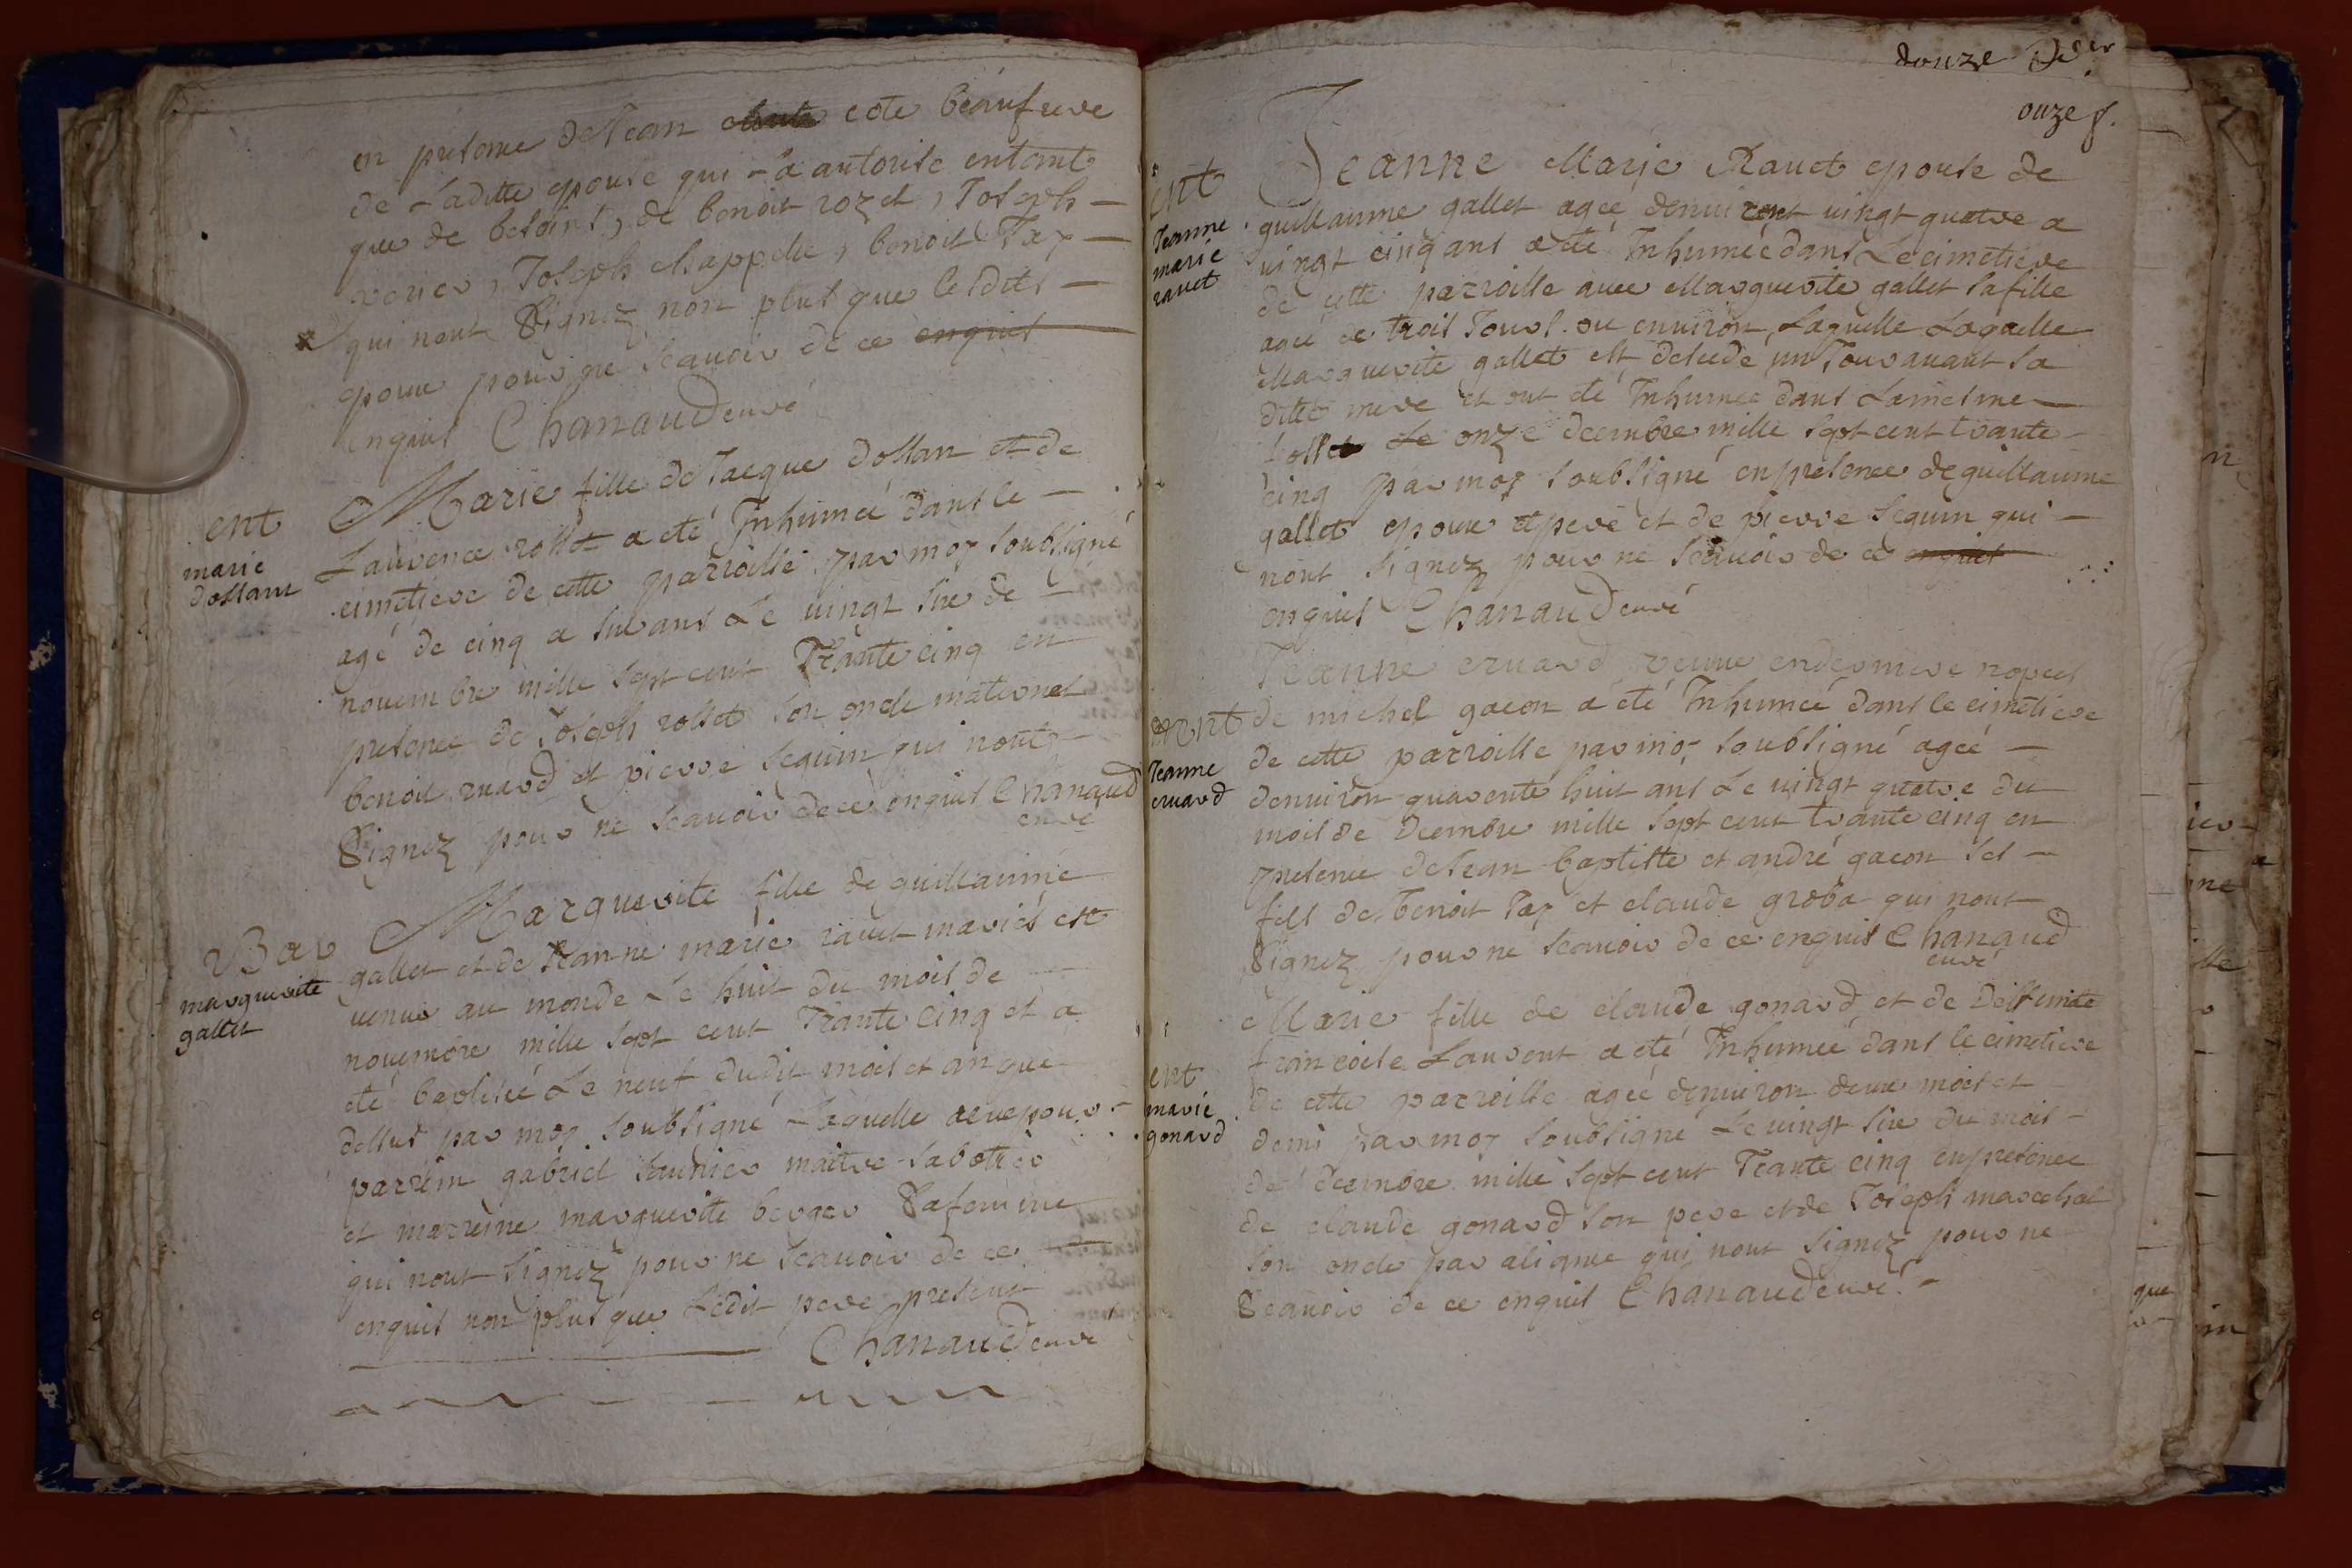 en presence de Jean cote beaufrere
de Laditte epouse qui La autorise entemt
que de besoins, de benoit rozet, Joseph
verier, Joseph chappelle, benoit Jay
qui nont Signez non plus que lesdits
epoux pour ne Scauoir de ce enquis
enquis Chanaud curé
ent
marie
dossant
Marie fille de Jacque dossan et de
Laurence rosset a eté Inhumeé dans le
cimetiere de cette parroisse par moy soubsigné
agé de cinq a six ans Le uingt six de
nouembre mille sept cent Trante cinq en
presence de Joseph rosset son oncle maternel
benoit ruard et pierre seguin qui nont
Signez pour ne scauoir de ce enquis Chanaud
curé
Bap
marguerite
gallet
Marguerite fille de guillaume
gallet et de Jeanne marie rauet mariés est
uenue au monde Le huit du mois de
nouembre mille sept cent Trante Cinq et a
eté baptiseé Le neuf dudit mois et an que
dessus par moy soubsigné Laquelle a eue pour
parrein gabriel saunier maitre sabotier
et marreine marguerite berger Safemme
qui nont signez pour ne scauoir de ce
enquis non plus que Ledit pere present
Chanaud curé
douze
onze f.
ent
Jeanne
marie
rauet
Jeanne Marie Rauet epouse de
guillaume gallet agee denuiront uingt quatre a
uingt cinq ans a eté Inhumeé dans Le cimetiere
de cette parroisse auec Marguerite gallet sa fille
ageé de trois Jours ou enuiron, Laquelle Laquelle
Marguerite gallet est decede un Jour auant sa
ditte mere et ont eté Inhumee dans Lamesme
fosse Le onze decembre mille sept cent trante
cinq par moy soubsigné en presence de guillaume
gallet epoux et pere et de pierre seguin qui
nont signez pour ne scauoir de ce enquis
enquis Chanaud curé
Jeanne cruard veuue en derniere nopces
de michel gacon a eté Inhumeé dans le cimetiere
de cette parroisse par moy soubsigné ageé
denuiron quarente huit ans Le uingt quatre du
mois de Decembre mille sept cent trante cinq en
presence de Jean baptiste et andré gacon ses
fils de benoit Jay et claude groba qui nont
Signez pour ne scauoir de ce enquis Chanaud
curé
Jeanne
cruard
ent
marie
gonard
Marie fille de claude gonard et de Deffunte
francoise Laurent a eté Inhumeé dans le cimetiere
de cette parroisse ageé denuiron deux mois et
demi par moy soubsigné Le uingt six du mois
de decembre mille sept cent Trante cinq en presence
de claude gonard son pere et de Joseph marechal
son oncle par aliance qui nont signez pour ne
Scauoir de ce enquis Chanaud curé